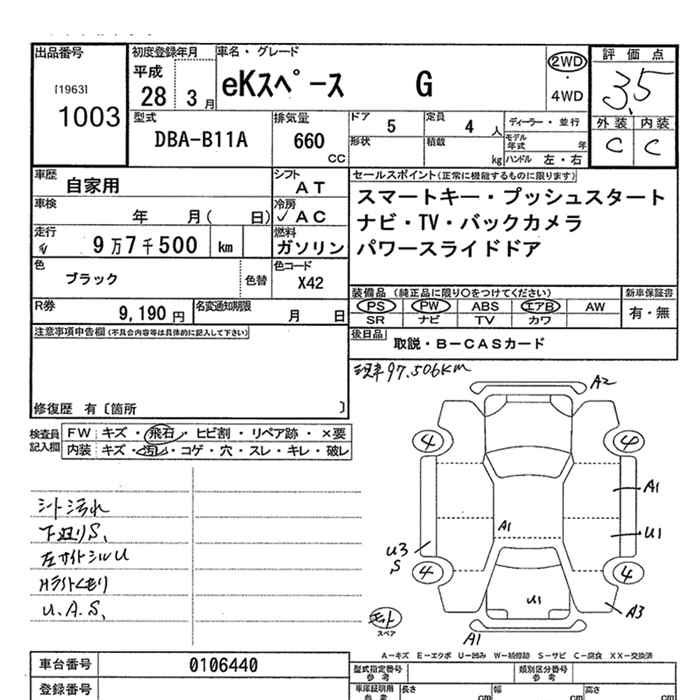 出品番号 初度登録年月 車名・グレード 評価点
[1963] 平成 eKスペース G 2WD 3.5
1003 28 3月 ・ 4WD
型式 排気量 ドア 定員 ディーラー・並行 外装 内装
DBA-B11A 660 5 4人 モデル年式 年 C C
CC 形状 積載 kg ハンドル 左・右
車歴 シフト セールスポイント(正常に機能するものに限ります)
自家用 AT スマートキー・プッシュスタート
車検 年 月( 日) 冷房 ✓AC ナビ・TV・バックカメラ
走行 9万7千500 km 燃料 ガソリン パワースライドドア
色 ブラック 色替 色コード X42
装備品(純正品に限り○をつけてください) 新車保証書
R券 9,190円 名変通知期限 月 日 PS PW ABS エアB AW 有・無
SR ナビ TV カワ
注意事項申告欄(不具合内容等は具体的に記入して下さい) 後日品 取説・B-CASカード
現車97.506KM
修復歴 有〔箇所 〕
検査員記入欄 FW キズ・飛石・ヒビ割・リペア跡・×要
内装 キズ・汚レ・コゲ・穴・スレ・キレ・破レ
A2
4 4
A1
シート汚れ
下廻りS、 A1 U1
左サイドシルU U3
S
Hライトくもり 4 4
U.A.S、 U1 A3
スペア A1
A-キズ E-エクボ U-凹み W-補修跡 S-サビ C-腐食 XX-交換済
車台番号 0106440 型式指定番号 参考 類別区分番号 参考
登録番号 車庫証明用 参考 長さ cm 幅 cm 高さ cm